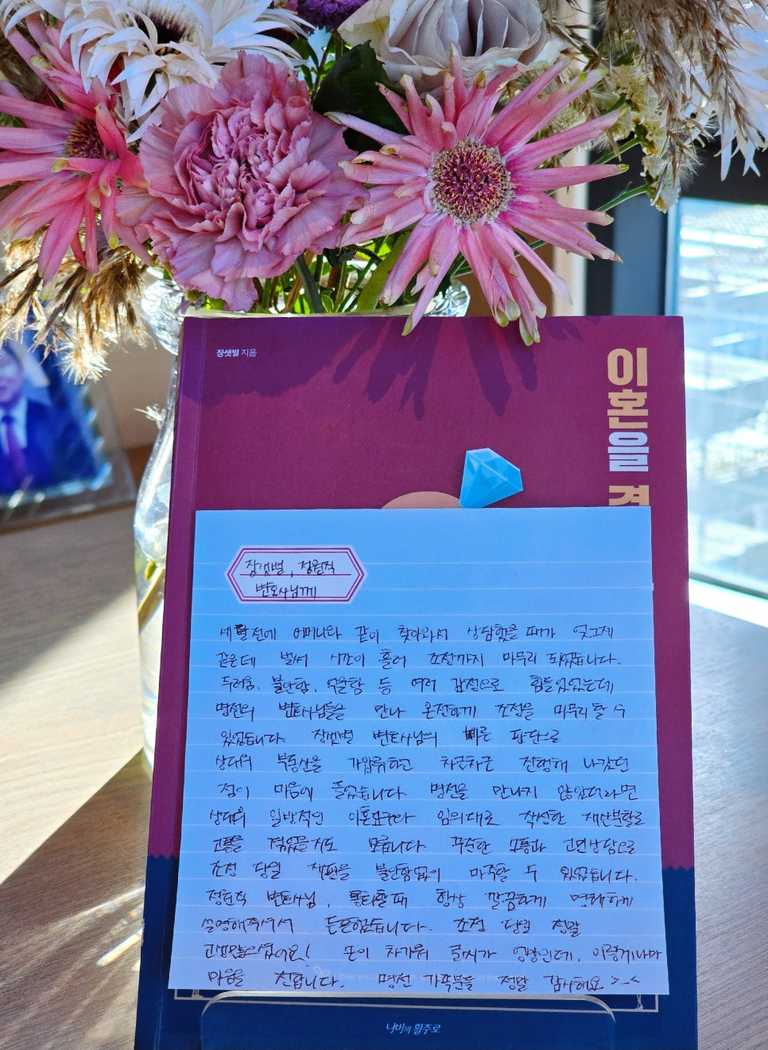 장샛별 지음
이혼을
장샛별, 정원직
변호사님께
세 달 전에 어머니와 같이 찾아와서 상담했을 때가 엊그제
같은데 벌써 시간이 흘러 조정까지 마무리 되었습니다.
두려움, 불안함, 억울함 등 여러 감정으로 힘들었었는데
명전의 변호사님들을 만나 온전하게 조정을 마무리 할 수
있었습니다. 장샛별 변호사님의 빠른 판단으로
상대의 부동산을 가압류하고 차근차근 진행해 나갔던
점이 마음에 들었습니다. 명전을 만나지 않았더라면
상대의 일방적인 이혼요구와 임의대로 작성한 재산분할로
고통을 겪었을지도 모릅니다. 꾸준한 소통과 고민상담으로
조정 당일 재판을 불안함없이 마주할 수 있었습니다.
정원직 변호사님, 통화할 때 항상 깔끔하게 명쾌하게
설명해주셔서 든든했습니다. 조정 당일 정말
고생많으셨어요! 손이 차가워 글씨가 엉망인데, 이렇게나마
마음을 전합니다. 명전 가족분들 정말 감사해요 >_<
나비의 활주로